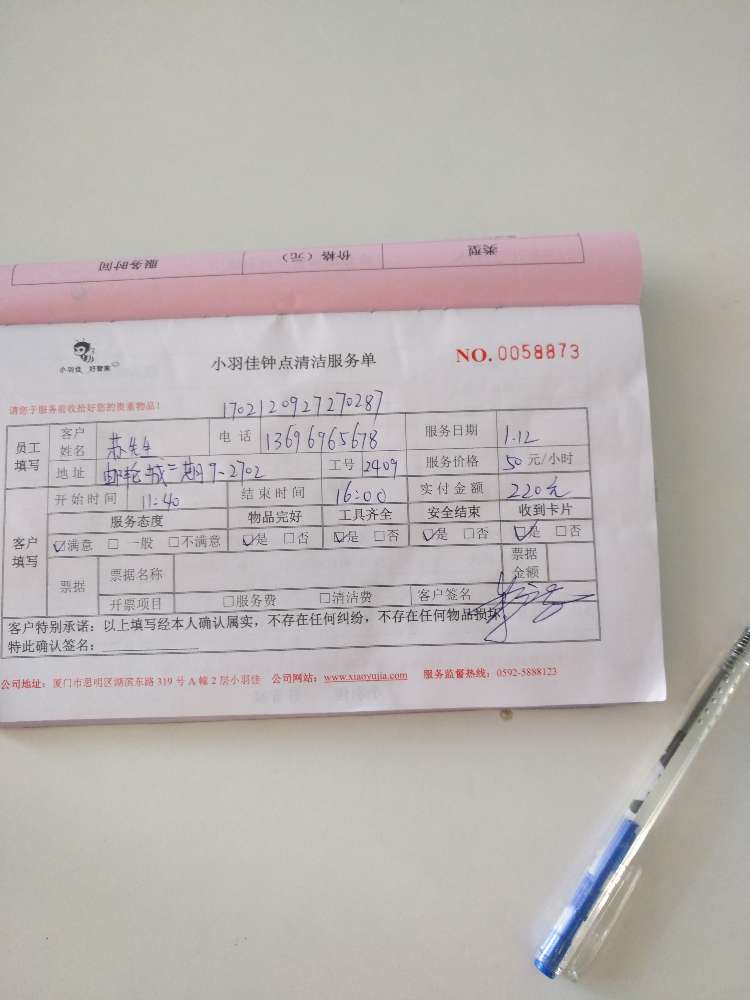 类型 价格（元） 服务时间
小羽佳 好管家
小羽佳钟点清洁服务单
NO. 0058873
请您于服务前收拾好您的贵重物品！
1702120927270287
员工填写 客户姓名 苏先生 电话 13696965678 服务日期 1.12
地址 邮轮城二期7-2702 工号 2409 服务价格 50元/小时
客户填写 开始时间 11:40 结束时间 16:00 实付金额 220元
服务态度 物品完好 工具齐全 安全结束 收到卡片
☑满意 □一般 □不满意 ☑是 □否 ☑是 □否 ☑是 □否 ☑是 □否
票据 票据名称 票据金额
开票项目 □服务费 □清洁费 客户签名
客户特别承诺：以上填写经本人确认属实，不存在任何纠纷，不存在任何物品损坏
特此确认签名：
公司地址：厦门市思明区湖滨东路319号A幢2层小羽佳 公司网站：www.xiaoyujia.com 服务监督热线：0592-5888123